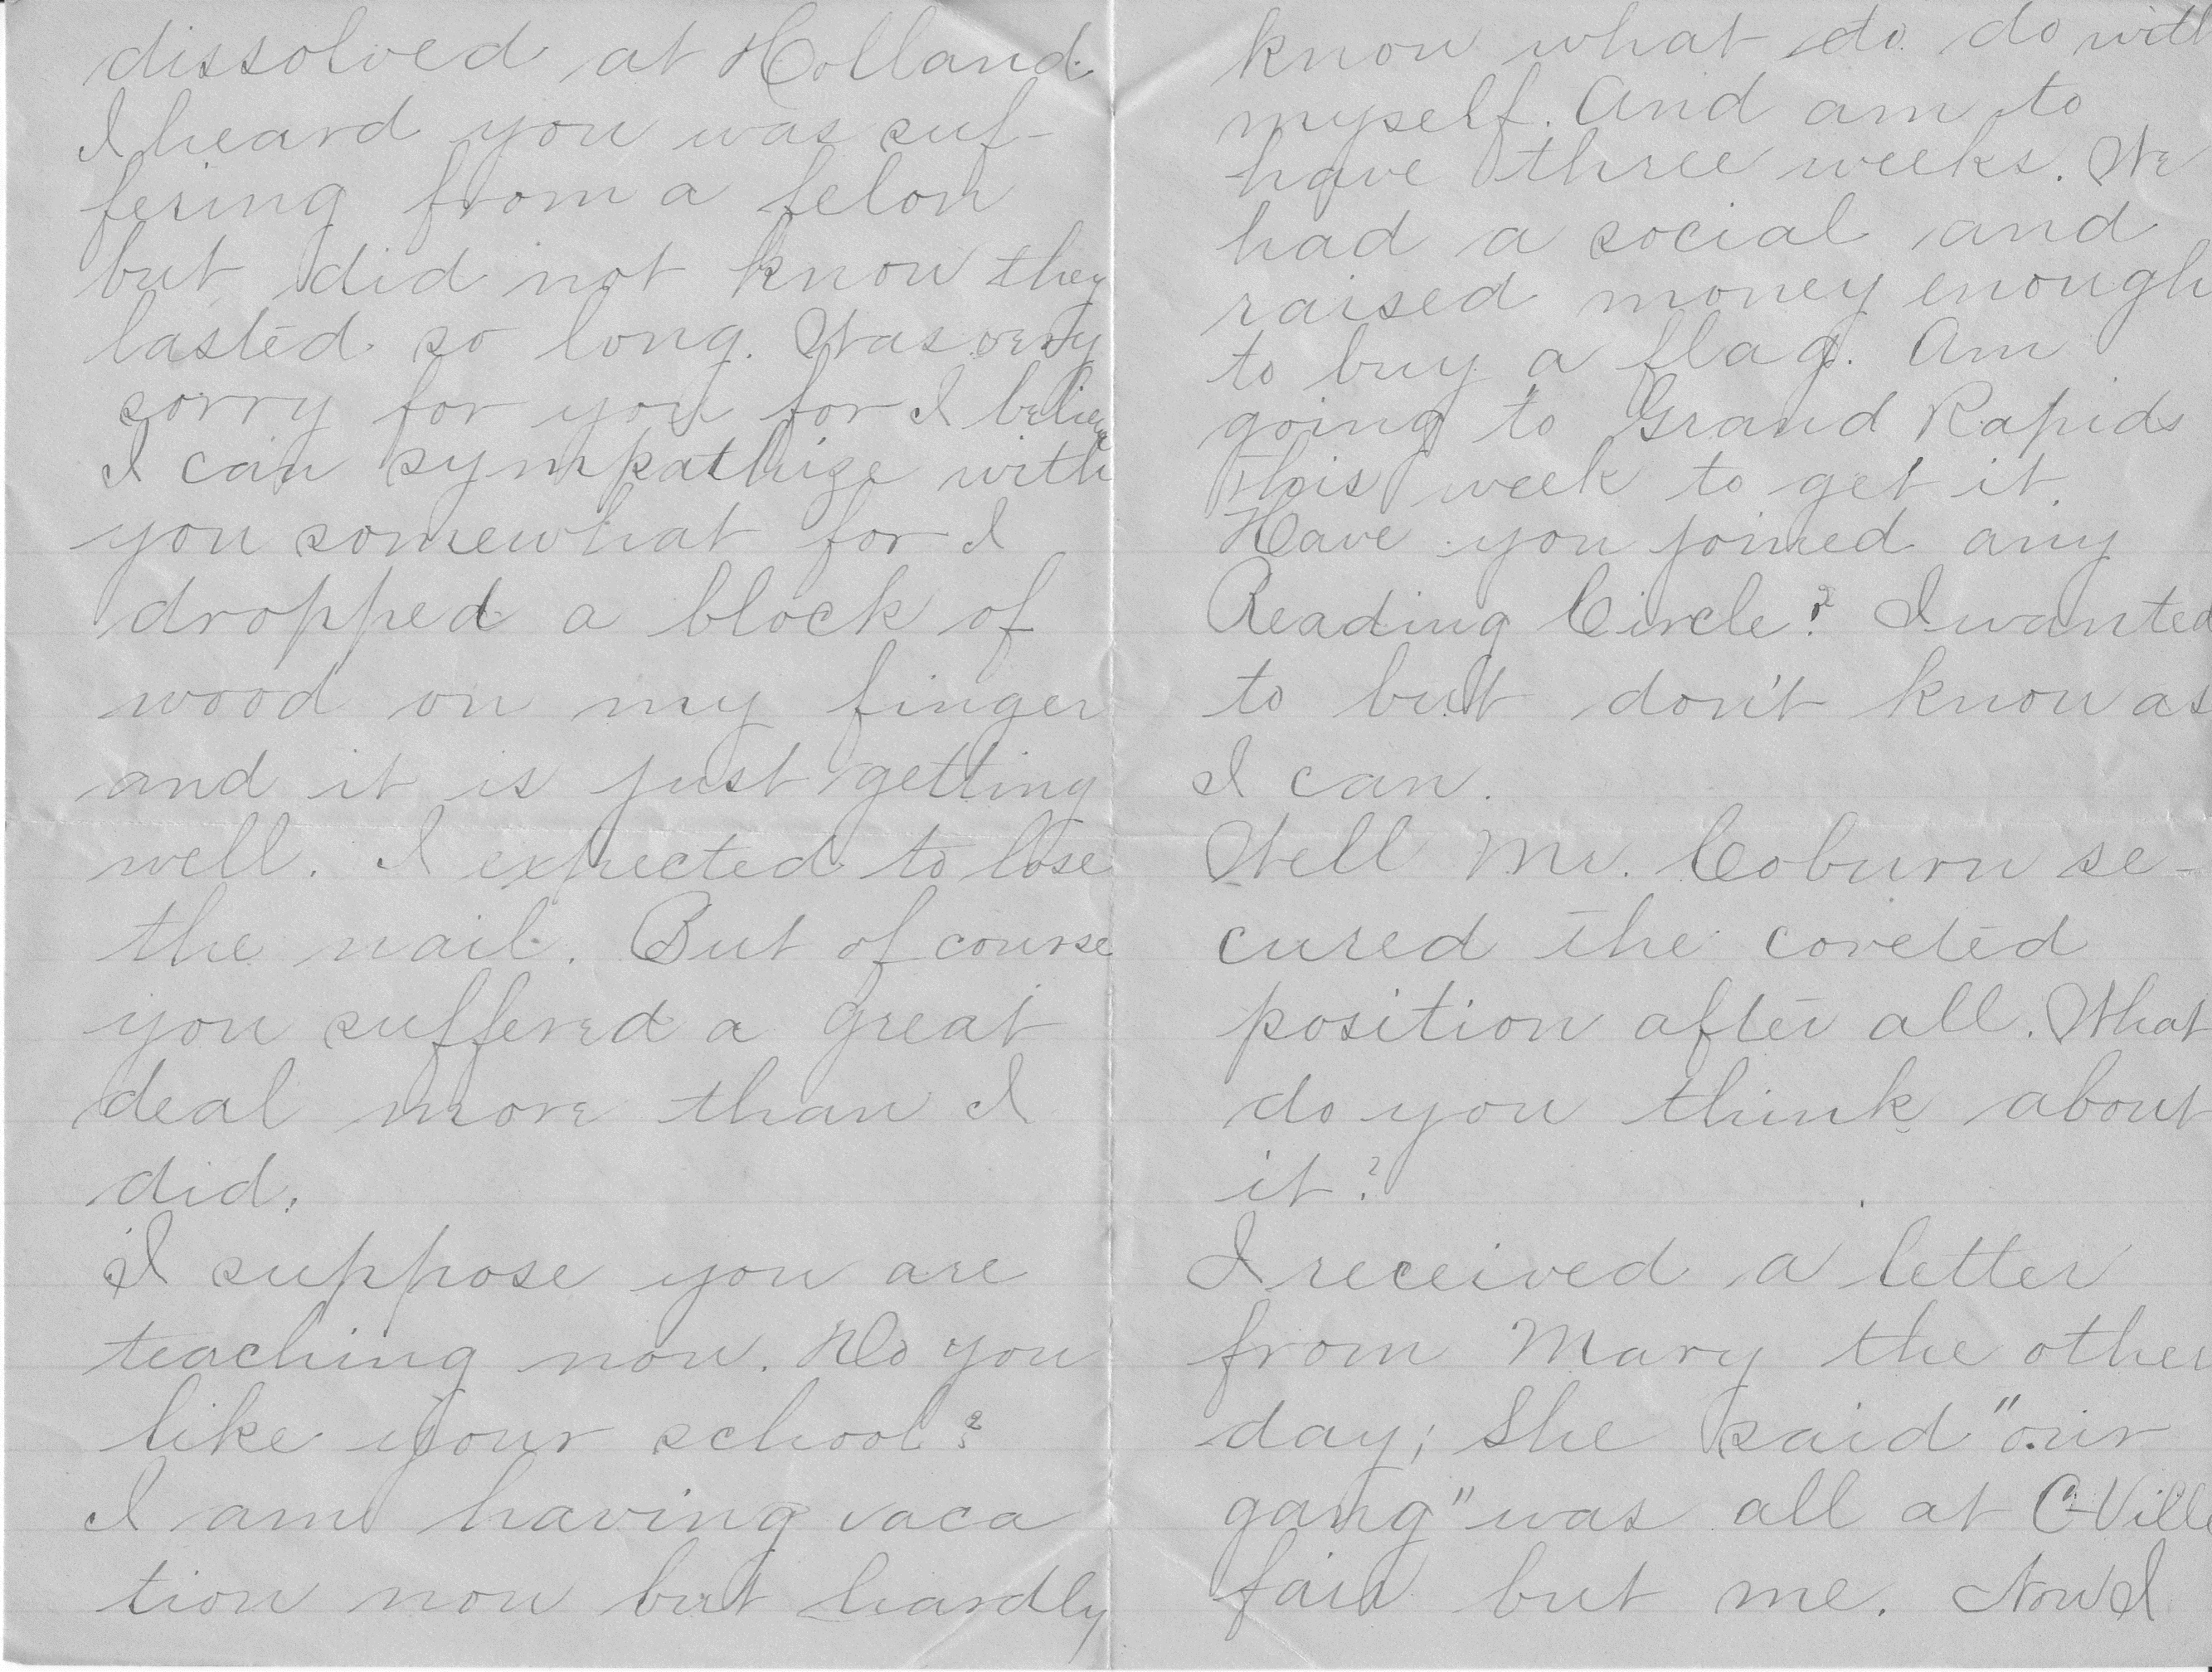 dissolved at Holland.
I heard you was suf-
fering from a felon
but did not know they
lasted so long. Was very
sorry for you for I believe
I can sympathize with
you somewhat for I
dropped a block of
wood on my finger
and it is just getting
well. I expected to lose
the nail. But of course
you suffered a great
deal more than I
did.
I suppose you are
teaching now. Do you
like your school?
I am having vaca
tion now but hardly
know what to do with
myself. And am to
have three weeks. We
had a social and
raised money enough
to buy a flag. Am
going to Grand Rapids
This week to get it.
Have you joined any
Reading Circle? I wanted
to but don't know as
I can.
Well Mr. Coburn se-
cured the coveted
position after all. What
do you think about
it?
I received a letter
from Mary the other
day; She said "our
gang" was all at C-Ville
fair but me. Now I